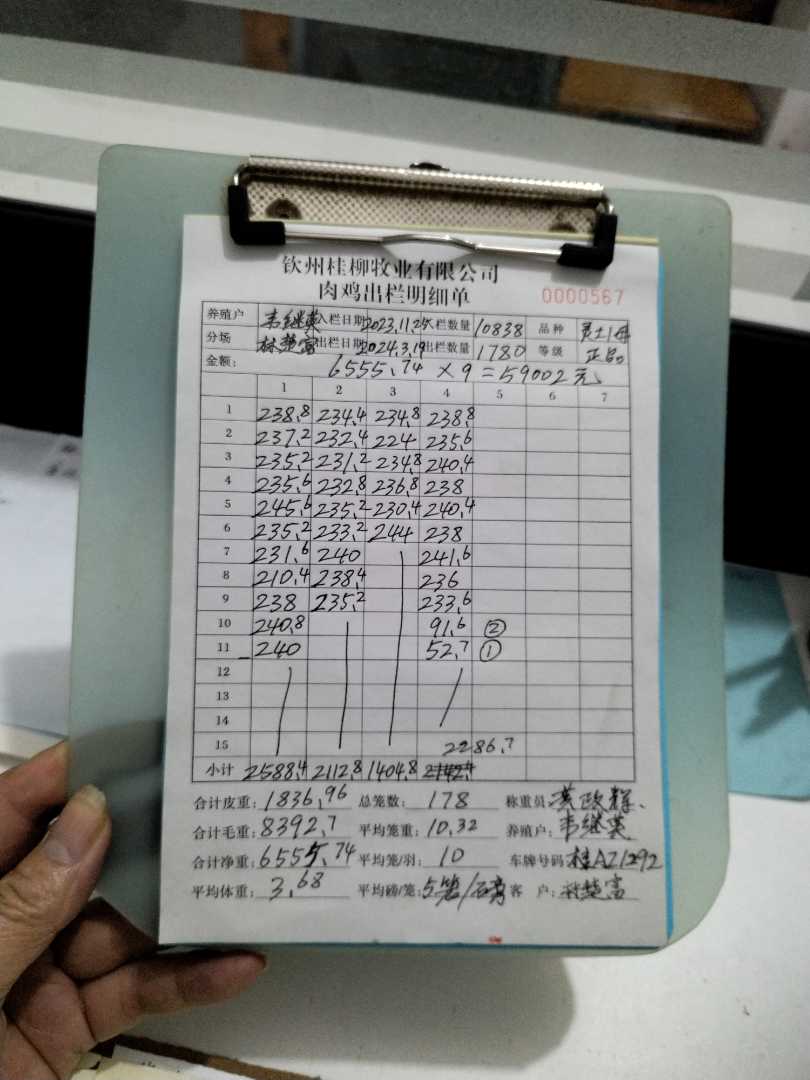 钦州桂柳牧业有限公司
肉鸡出栏明细单 0000567
养殖户 韦继英 入栏日期 2023.11.25 入栏数量 10838 品种 灵土1母
分场 林楚富 出栏日期 2024.3.19 出栏数量 1780 等级 正品
金额: 6555.74 × 9 = 59002元
1 2 3 4 5 6 7
1 238.8 234.4 234.8 238.8
2 237.2 232.4 224 235.6
3 235.2 231.2 234.8 240.4
4 235.6 232.8 236.8 238
5 245.6 235.2 230.4 240.4
6 235.2 233.2 244 238
7 231.6 240 241.6
8 210.4 238.4 236
9 238 235.2 233.6
10 240.8 91.6 ②
11 240 52.7 ①
12
13
14
15 2286.7
小计 2588.4 2112.8 1404.8 2142.4
合计皮重: 1836.96 总笼数: 178 称重员:
合计毛重: 8392.7 平均笼重: 10.32 养殖户: 韦继英
合计净重: 6555.74 平均笼/羽: 10 车牌号码: 桂AZ1292
平均体重: 3.68 平均磅/笼: 5笼/磅 客 户: 林楚富